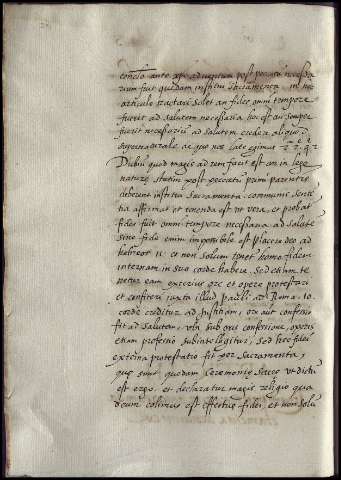 conclo. ante xpi adventum post peccatū necessa
rium fuit quedam institui sacramenta. in hoc
articulo tractari solet an fides omni tempore
fuerit ad salutem necessaria hoc est an semper
fuerit necessariū ad salutem credere aliquid
supernaturale de quo nos late egimus 2ª 2ᵉ q. 2
Dubiū quod magis ad rem facit est an in lege
nature statim post peccatum primi parentis
deberent institui sacramenta. communis senten
tia affirmat et tenenda est ut vera, et probat
fides fuit omni tempore necessaria ad salutē
sine fide enim impossibile est placere deo ad
hebreos 11. et non solum tenet homo fidem
internam in suo corde habere, sed etiam te
netur eam exterius ore et opere protestari
et confiteri iuxta illud Pauli ad Roma. 10.
corde creditur ad justitiam, ore aut confessio
fit ad salutem, ubi sub oris confessione, operis
etiam professio subintelligitur, sed hec fidei
externa protestatio fit per sacramenta,
que sunt quedam ceremonie sacre ut dictū
est ergo. et declaratur magis religio qua
deum colimus est effectus fidei, et non solū